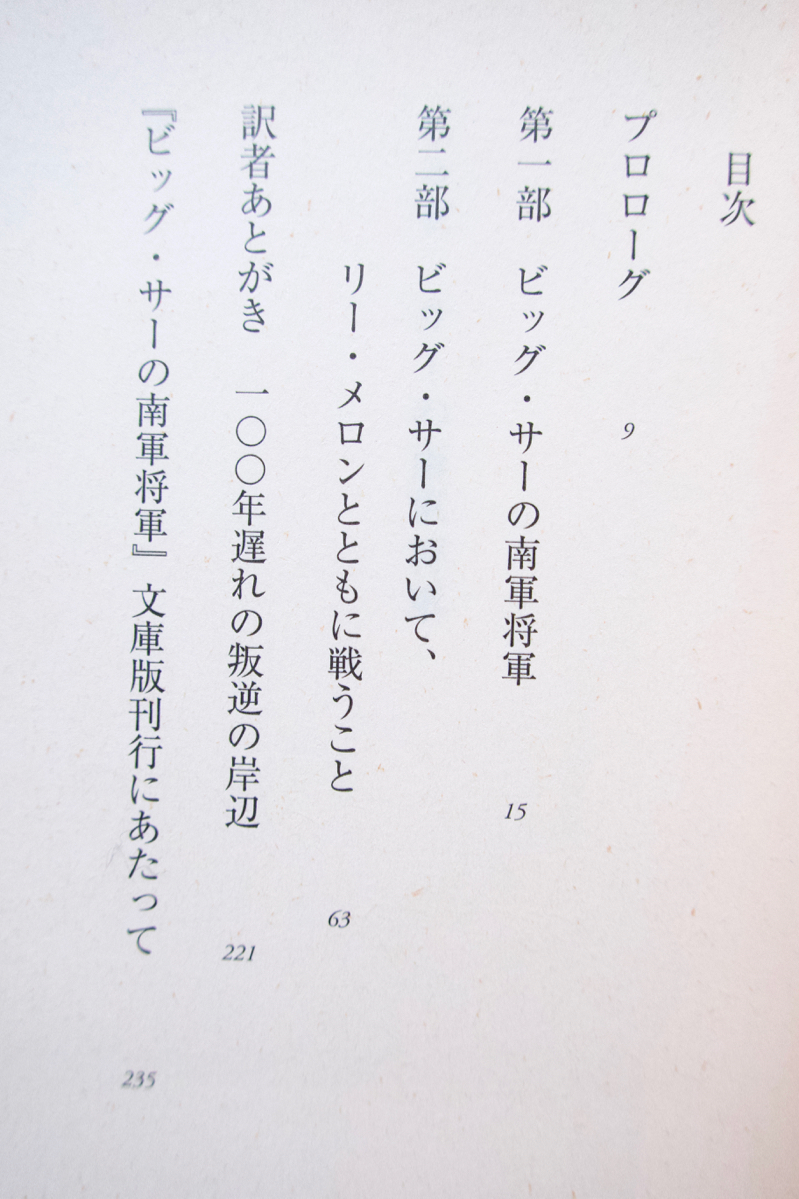 目次
プロローグ 9
第一部 ビッグ・サーの南軍将軍 15
第二部 ビッグ・サーにおいて、
リー・メロンとともに戦うこと 63
訳者あとがき 一〇〇年遅れの叛逆の岸辺 221
『ビッグ・サーの南軍将軍』文庫版刊行にあたって 235